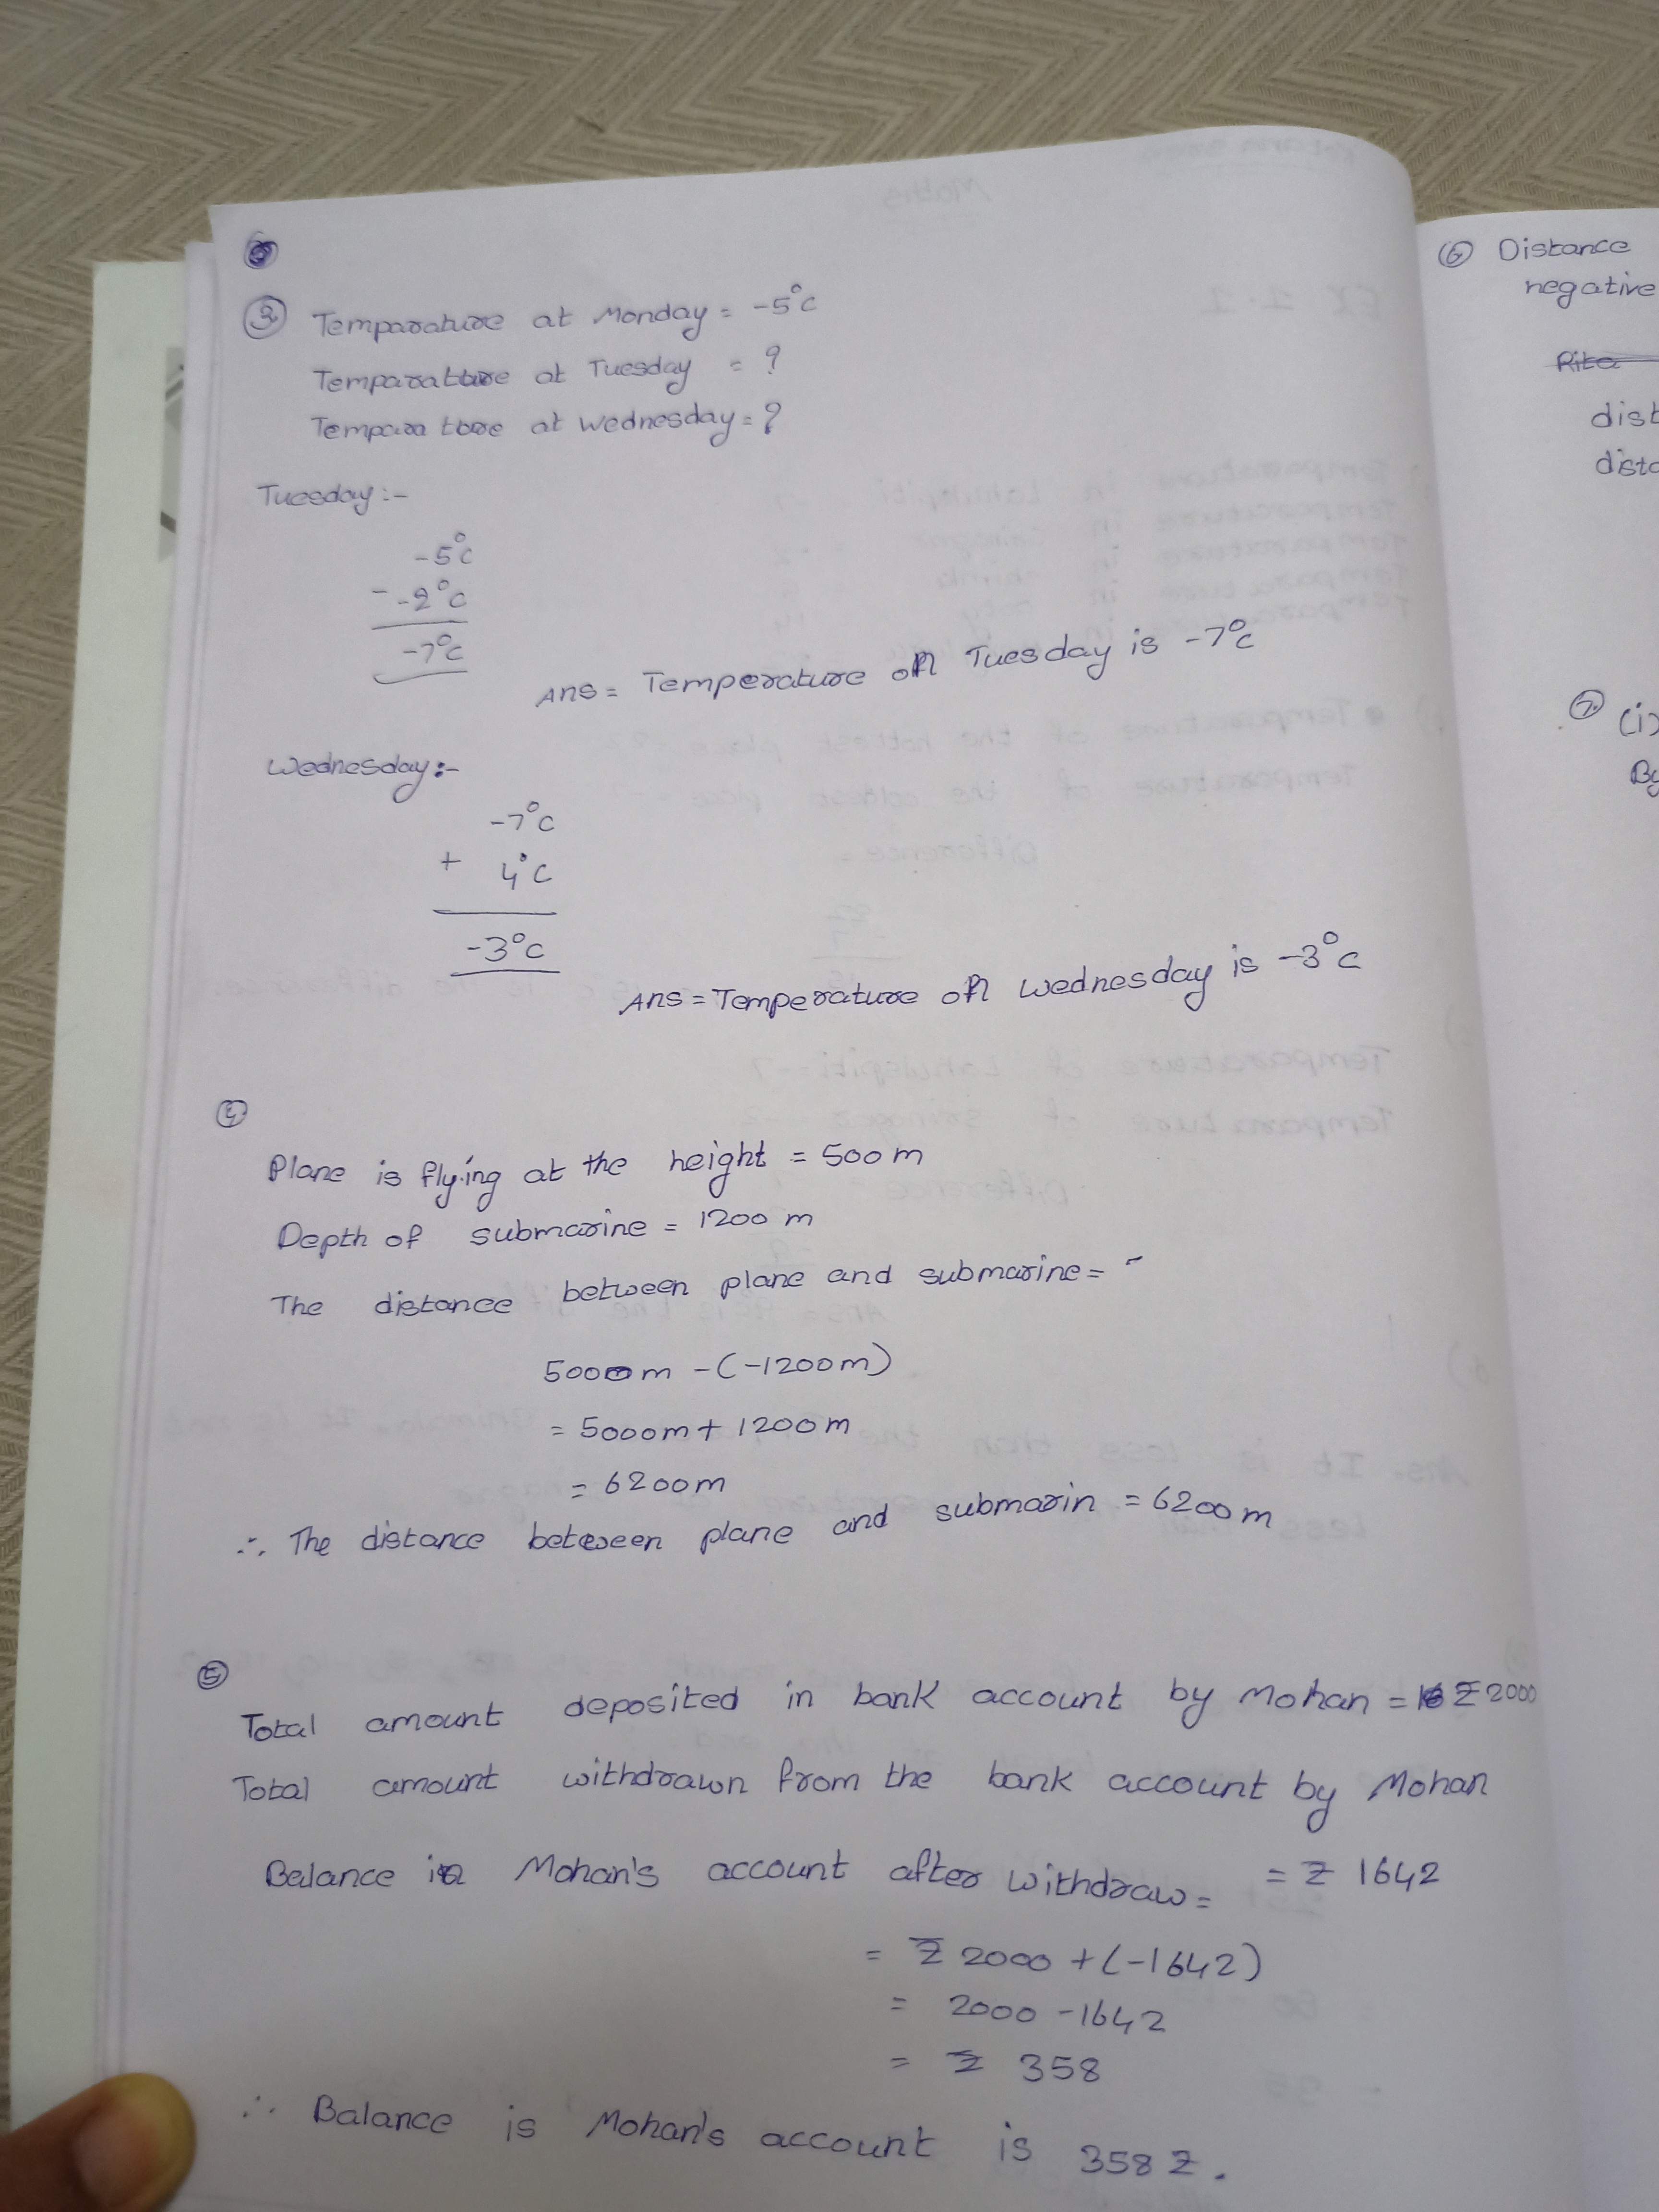 ③ Temparature at Monday = -5°C
Temparature at Tuesday = ?
Temparature at Wednesday = ?
Tuesday :-
-5°C
- -2°C
-7°C
Ans = Temperature on Tuesday is -7°C
Wednesday :-
-7°C
+ 4°C
-3°C
Ans = Temperature on Wednesday is -3°C
④
Plane is flying at the height = 500 m
Depth of submarine = 1200 m
The distance between plane and submarine = -
5000m - (-1200m)
= 5000m + 1200m
= 6200m
∴ The distance between plane and submarin = 6200m
⑤
Total amount deposited in bank account by Mohan = ₹ 2000
Total amount withdrawn from the bank account by Mohan
= ₹ 1642
Balance in Mohan's account after withdraw =
= ₹ 2000 + (-1642)
= 2000 - 1642
= ₹ 358
∴ Balance is Mohan's account is 358 ₹.
⑥ Distance
negative
Rita
dist
dista
⑦ (i)
By